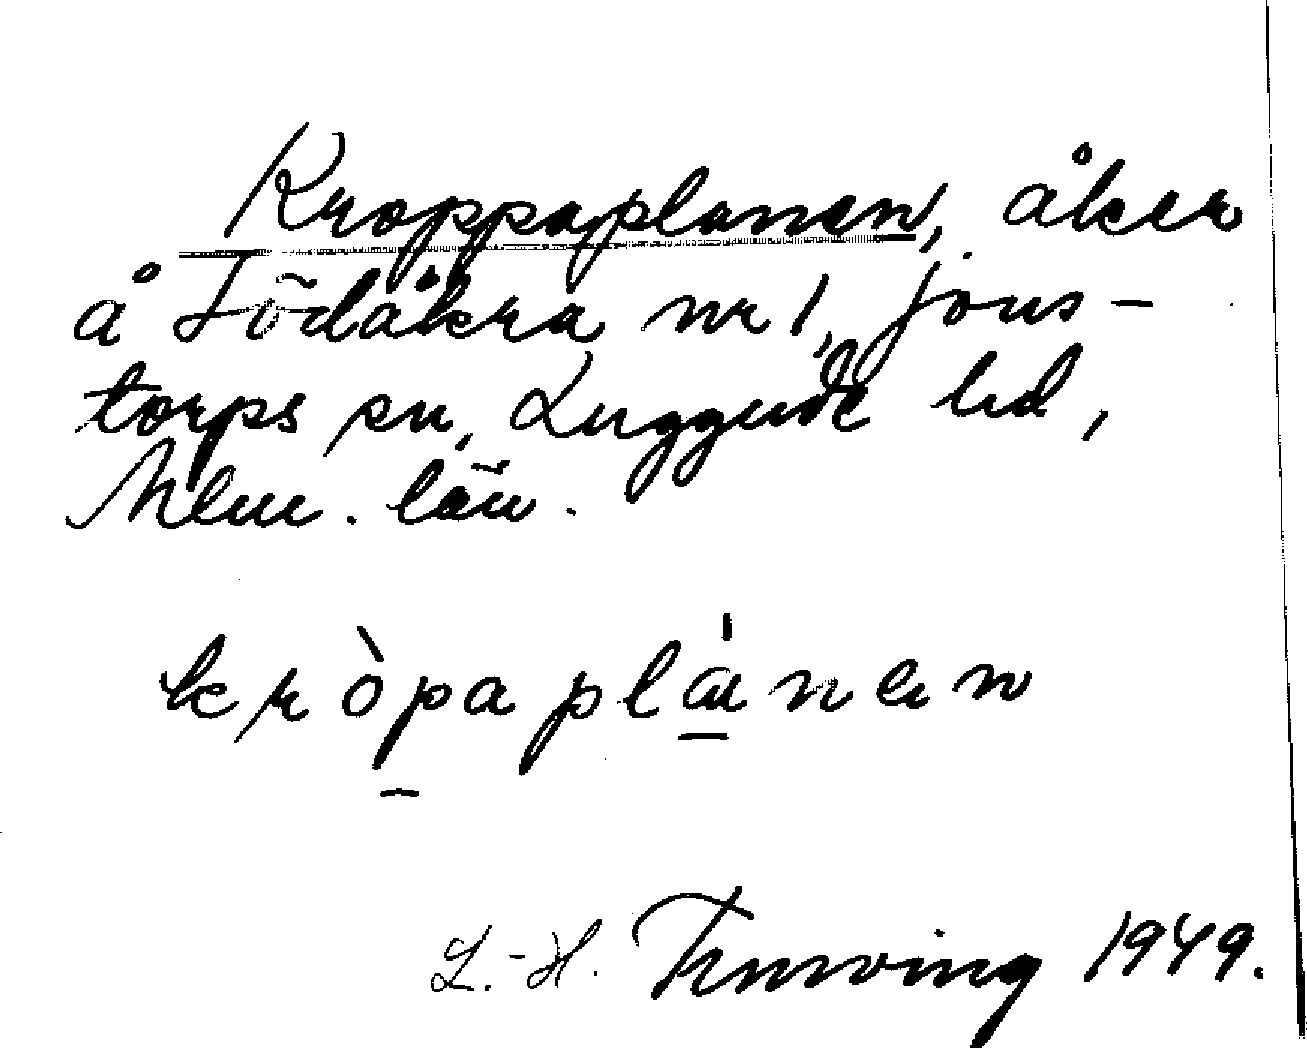 Kroppaplanen, åker
å Södåkra nr 1, Jons-
torps sn, Luggude hd,
Mlm. län.
kròpaplánen
L.-H. 1949.